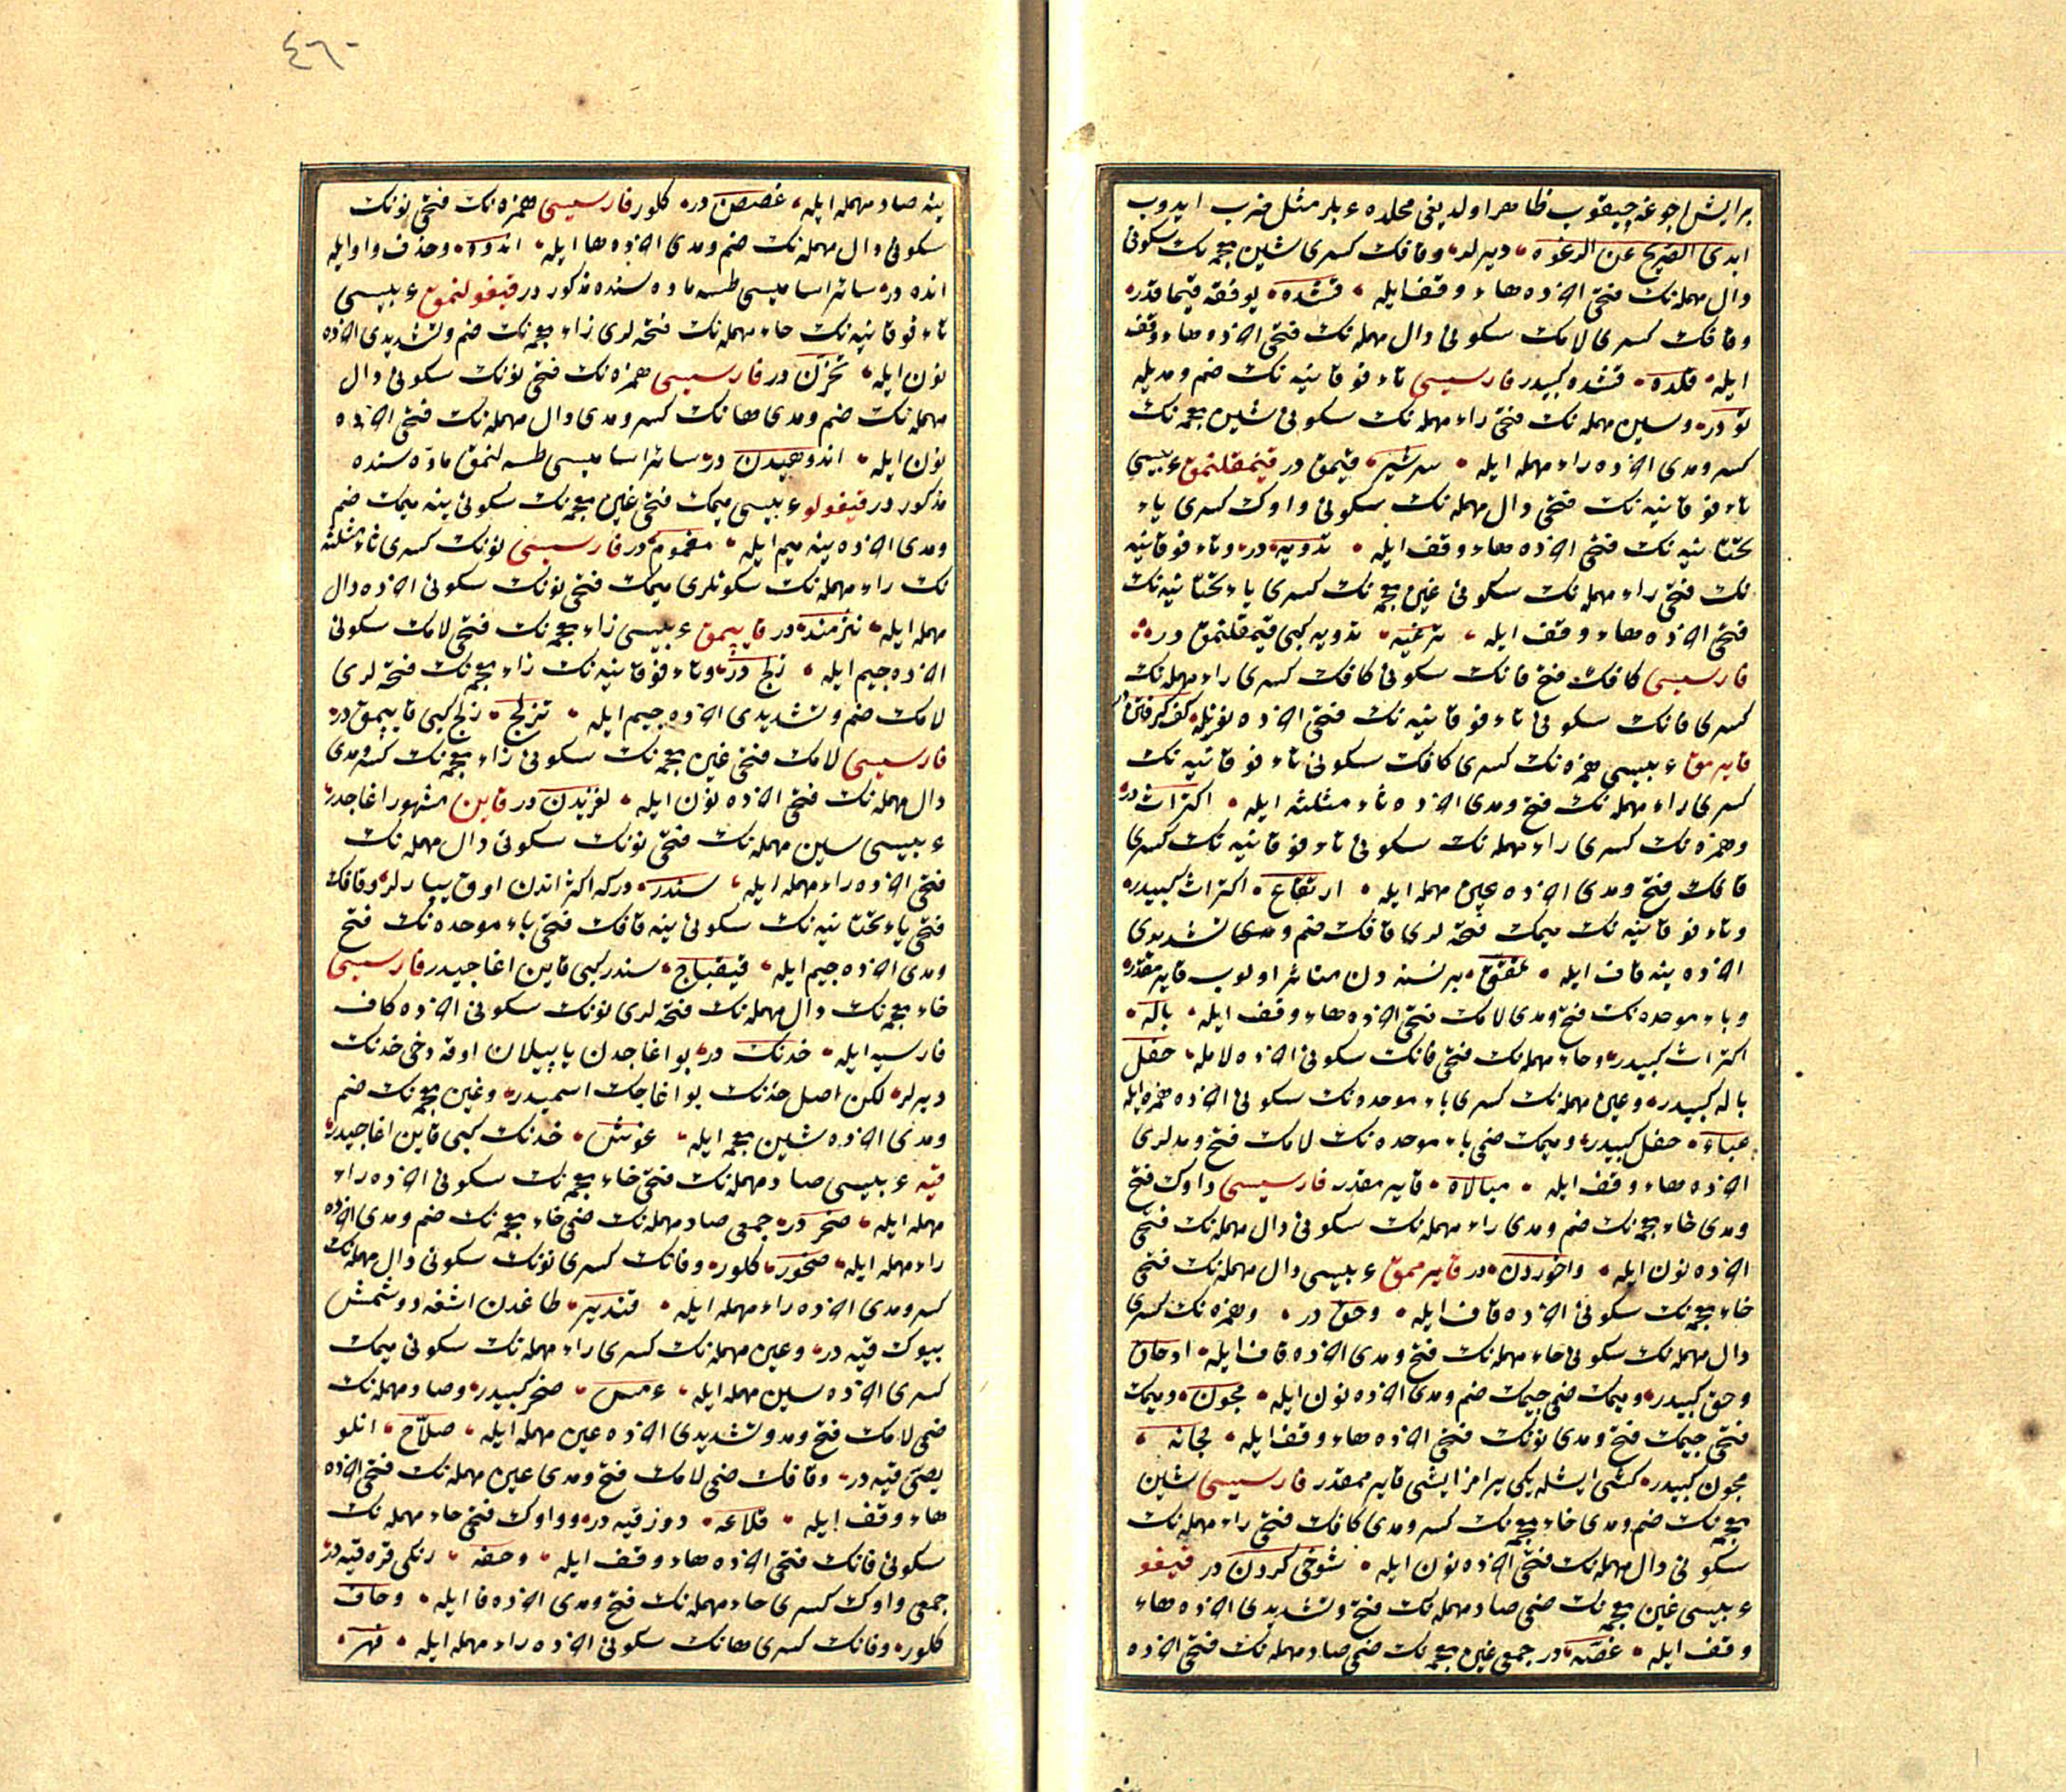 بر ایش اجوغه چیقوب ظاهر اولدیغی محلده عربلر مثل ضرب ایدوب
ابدی الصریح عن الرغوه دیرلر وقافك كسری شین معجمه نك سكونی
دال مهمله نك فتحی اخرده هاء وقف ایله قشده یوفقه قیماقدر
وقافك كسری لامك سكونی دال مهمله نك فتحی اخرده هاء وقف
ایله قلده قشده كبیدر فارسیسی تاء فوقانیه نك ضم ومدیله
تو در وسین مهمله نك فتحی راء مهمله نك سكونی شین معجمه نك
كسر ومدی اخرده راء مهمله ایله سرشیر قیمق در قیمقلنمق عربیسی
تاء فوقانیه نك فتحی دال مهمله نك سكونی واوك كسری یاء
تحتانیه نك فتحی اخرده هاء وقف ایله تدویه در وتاء فوقانیه
نك فتحی راء مهمله نك سكونی غین معجمه نك كسری یاء تحتانیه نك
فتحی اخرده هاء وقف ایله ترغیه تدویه كبی قیمقلنمق در
فارسیسی كافك فتح فانك سكونی كافك كسری راء مهمله نك
كسری فانك سكونی تاء فوقانیه نك فتحی اخرده نونله كف كرفتن در
قایرمق عربیسی همزه نك كسری كافك سكونی تاء فوقانیه نك
كسری راء مهمله نك فتح ومدی اخرده ثاء مثلثه ایله اكتراث در
وهمزه نك كسری راء مهمله نك سكونی تاء فوقانیه نك كسری
قافك فتح ومدی اخرده عین مهمله ایله ارتقاع اكتراث كبیدر
وتاء فوقانیه نك میمك فتحه لری قافك ضم ومدی تشدیدی
اخرده ینه قاف ایله تمقق بر نسنه دن متاثر اولوب قایرمقدر
وباء موحده نك فتح ومدی لامك فتحی اخرده هاء وقف ایله باله
اكتراث كبیدر وحاء مهمله نك فتحی فانك سكونی اخرده لامله حفل
باله كبیدر وعین مهمله نك كسری باء موحده نك سكونی اخرده همزه ایله
عباء حفل كبیدر ومیمك ضمی باء موحده نك لامك فتح ومدلری
اخرده هاء وقف ایله مبالاة قایرمقدر فارسیسی واوك فتح
ومدی خاء معجمه نك ضم ومدی راء مهمله نك سكونی دال مهمله نك فتحی
اخرده نون ایله واخوردن در قایرممق عربیسی دال مهمله نك فتحی
خاء معجمه نك سكونی اخرده قاف ایله وحق در وهمزه نك كسری
دال مهمله نك سكونی حاء مهمله نك فتح ومدی اخرده قاف ایله ادحاق
وحق كبیدر ومیمك ضمی جیمك ضم ومدی اخرده نون ایله مجون ومیمك
فتحی جیمك فتح ومدی نونك فتحی اخرده هاء وقف ایله مجانه
مجون كبیدر كشی ایشلیكی یرامز ایشی قایرممقدر فارسیسی شین
معجمه نك ضم ومدی خاء معجمه نك كسر ومدی كافك فتحی راء مهمله نك
سكونی دال مهمله نك فتحی اخرده نون ایله شوخی كردن در قیغو
عربیسی غین معجمه نك ضمی صاد مهمله نك فتح وتشدیدی اخرده هاء
وقف ایله غصه در جمعی غین معجمه نك ضمی صاد مهمله نك فتحی اخرده
٤٦٠
ینه صاد مهمله ایله غصص در كلور فارسیسی همزه نك فتحی نونك
سكونی دال مهمله نك ضم ومدی اخرده ها ایله اندوه وحذف واو ایله
انده در سائر اسامیسی طسه ماده سنده مذكور در قیغولنمق عربیسی
تاء فوقانیه نك حاء مهمله نك فتحه لری زاء معجمه نك ضم وتشدیدی اخرده
نون ایله تحزن در فارسیسی همزه نك فتحی نونك سكونی دال
مهمله نك ضم ومدی هانك كسر ومدی دال مهمله نك فتحی اخرده
نون ایله اندوهیدن در سائر اسامیسی طسه لنمق ماده سنده
مذكور در قیغولو عربیسی میمك فتحی غین معجمه نك سكونی ینه میمك ضم
ومدی اخرده ینه میم ایله مغموم در فارسیسی نونك كسری ثاء مثلثه
نك راء مهمله نك سكونلری میمك فتحی نونك سكونی اخرده دال
مهمله ایله نثرمند در قاییمق عربیسی زاء معجمه نك فتحی لامك سكونی
اخرده جیم ایله زلج در وتاء فوقانیه نك زاء معجمه نك فتحه لری
لامك ضم وتشدیدی اخرده جیم ایله تزلج زلج كبی قاییمق در
فارسیسی لامك فتحی غین معجمه نك سكونی زاء معجمه نك كسر ومدی
دال مهمله نك فتحی اخرده نون ایله لغزیدن در قاین مشهور اغاجدر
عربیسی سین مهمله نك فتحی نونك سكونی دال مهمله نك
فتحی اخرده راء مهمله ایله سندر در كه اكثر اندن اوق یپارلر وقافك
فتحی یاء تحتانیه نك سكونی ینه قافك فتحی باء موحده نك فتح
ومدی اخرده جیم ایله قیقباج سندر كبی قاین اغاجیدر فارسیسی
خاء معجمه نك دال مهمله نك فتحه لری نونك سكونی اخرده كاف
فارسیه ایله خدنك در بو اغاجدن یاپیلان اوقه دخی خدنك
دیرلر لكن اصل خدنك بو اغاجك اسمیدر وغین معجمه نك ضم
ومدی اخرده شین معجمه ایله غوش خدنك كبی قاین اغاجیدر
قیه عربیسی صاد مهمله نك فتحی خاء معجمه نك سكونی اخرده راء
مهمله ایله صخر در جمعی صاد مهمله نك ضمی خاء معجمه نك ضم ومدی اخرده
راء مهمله ایله صخور كلور وفانك كسری نونك سكونی دال مهمله نك
كسر ومدی اخرده راء مهمله ایله فندیر طاغدن اشغه دوشمش
بیوك قیه در وعین مهمله نك كسری راء مهمله نك سكونی میمك
كسری اخرده سین مهمله ایله عرمس صخر كبیدر وصاد مهمله نك
ضمی لامك فتح ومد وتشدیدی اخرده عین مهمله ایله صلاع انلو
یصی قیه در وقافك ضمی لامك فتح ومدی عین مهمله نك فتحی اخرده
هاء وقف ایله قلاعه دوز قیه در وواوك فتحی حاء مهمله نك
سكونی فانك فتحی اخرده هاء وقف ایله وحفه رنكی قره قیه در
جمعی واوك كسری حاء مهمله نك فتح ومدی اخرده فا ایله وحاف
كلور وفانك كسری هانك سكونی اخرده راء مهمله ایله فهر